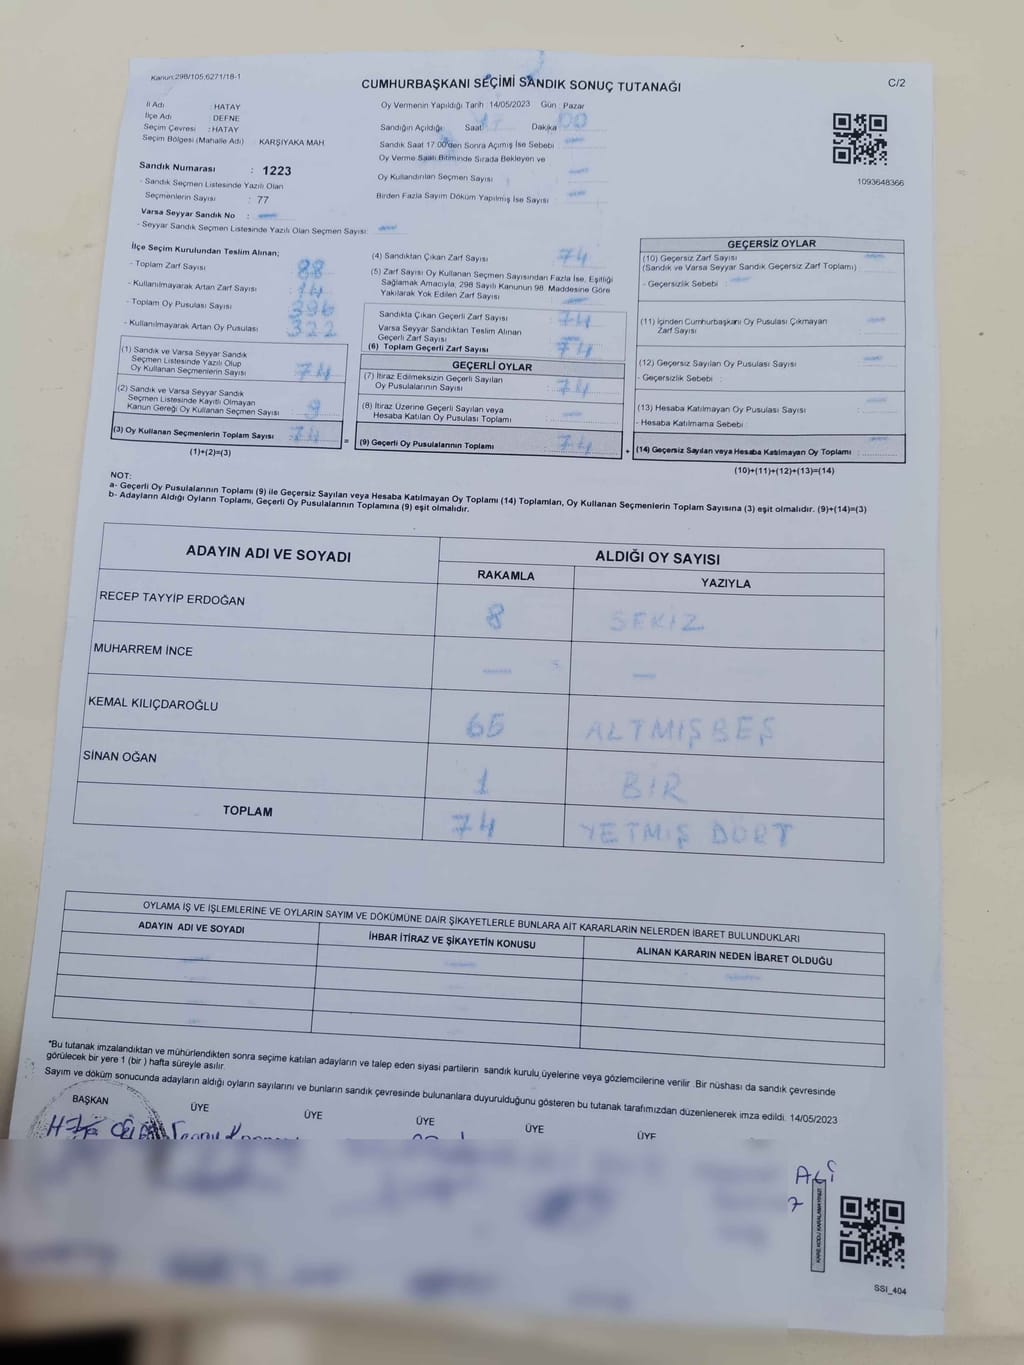 Kanun:298/105,6271/18-1
CUMHURBAŞKANI SEÇİMİ SANDIK SONUÇ TUTANAĞI
C/2
İl Adı : HATAY
İlçe Adı : DEFNE
Seçim Çevresi : HATAY
Seçim Bölgesi (Mahalle Adı) KARŞIYAKA MAH
Sandık Numarası : 1223
- Sandık Seçmen Listesinde Yazılı Olan
Seçmenlerin Sayısı : 77
Varsa Seyyar Sandık No :
- Seyyar Sandık Seçmen Listesinde Yazılı Olan Seçmen Sayısı:
Oy Vermenin Yapıldığı Tarih :14/05/2023 Gün : Pazar
Sandığın Açıldığı Saat Dakika 00
Sandık Saat 17.00'den Sonra Açımış İse Sebebi :
Oy Verme Saati Bitiminde Sırada Bekleyen ve
Oy Kullandırılan Seçmen Sayısı :
Birden Fazla Sayım Döküm Yapılmış İse Sayısı :
1093648366
İlçe Seçim Kurulundan Teslim Alınan;
- Toplam Zarf Sayısı : 88
- Kullanılmayarak Artan Zarf Sayısı : 14
- Toplam Oy Pusulası Sayısı : 396
- Kullanılmayarak Artan Oy Pusulası : 322
(1) Sandık ve Varsa Seyyar Sandık
Seçmen Listesinde Yazılı Olup
Oy Kullanan Seçmenlerin Sayısı : 74
(2) Sandık ve Varsa Seyyar Sandık
Seçmen Listesinde Kayıtlı Olmayan
Kanun Gereği Oy Kullanan Seçmen Sayısı : 9
(3) Oy Kullanan Seçmenlerin Toplam Sayısı : 74
(1)+(2)=(3)
=
(4) Sandıktan Çıkan Zarf Sayısı : 74
(5) Zarf Sayısı Oy Kullanan Seçmen Sayısından Fazla İse, Eşitliği
Sağlamak Amacıyla, 298 Sayılı Kanunun 98. Maddesine Göre
Yakılarak Yok Edilen Zarf Sayısı :
Sandıkta Çıkan Geçerli Zarf Sayısı : 74
Varsa Seyyar Sandıktan Teslim Alınan
Geçerli Zarf Sayısı :
(6) Toplam Geçerli Zarf Sayısı : 74
GEÇERLİ OYLAR
(7) İtiraz Edilmeksizin Geçerli Sayılan
Oy Pusulalarının Sayısı : 74
(8) İtiraz Üzerine Geçerli Sayılan veya
Hesaba Katılan Oy Pusulası Toplamı :
(9) Geçerli Oy Pusulalarının Toplamı : 74
+
GEÇERSİZ OYLAR
(10) Geçersiz Zarf Sayısı :
(Sandık ve Varsa Seyyar Sandık Geçersiz Zarf Toplamı)
- Geçersizlik Sebebi :
(11) İçinden Cumhurbaşkanı Oy Pusulası Çıkmayan
Zarf Sayısı
(12) Geçersiz Sayılan Oy Pusulası Sayısı :
- Geçersizlik Sebebi :
(13) Hesaba Katılmayan Oy Pusulası Sayısı :
- Hesaba Katılmama Sebebi :
(14) Geçersiz Sayılan veya Hesaba Katılmayan Oy Toplamı :
(10)+(11)+(12)+(13)=(14)
NOT:
a- Geçerli Oy Pusulalarının Toplamı (9) ile Geçersiz Sayılan veya Hesaba Katılmayan Oy Toplamı (14) Toplamları, Oy Kullanan Seçmenlerin Toplam Sayısına (3) eşit olmalıdır. (9)+(14)=(3)
b- Adayların Aldığı Oyların Toplamı, Geçerli Oy Pusulalarının Toplamına (9) eşit olmalıdır.
ADAYIN ADI VE SOYADI
ALDIĞI OY SAYISI
RAKAMLA YAZIYLA
RECEP TAYYİP ERDOĞAN 8 SEKİZ
MUHARREM İNCE — —
KEMAL KILIÇDAROĞLU 65 ALTMIŞBEŞ
SİNAN OĞAN 1 BİR
TOPLAM 74 YETMİŞ DÖRT
OYLAMA İŞ VE İŞLEMLERİNE VE OYLARIN SAYIM VE DÖKÜMÜNE DAİR ŞİKAYETLERLE BUNLARA AİT KARARLARIN NELERDEN İBARET BULUNDUKLARI
ADAYIN ADI VE SOYADI
İHBAR İTİRAZ VE ŞİKAYETİN KONUSU
ALINAN KARARIN NEDEN İBARET OLDUĞU
*Bu tutanak imzalandıktan ve mühürlendikten sonra seçime katılan adayların ve talep eden siyasi partilerin sandık kurulu üyelerine veya gözlemcilerine verilir. Bir nüshası da sandık çevresinde
görülecek bir yere 1 (bir ) hafta süreyle asılır.
Sayım ve döküm sonucunda adayların aldığı oyların sayılarını ve bunların sandık çevresinde bulunanlara duyurulduğunu gösteren bu tutanak tarafımızdan düzenlenerek imza edildi. 14/05/2023
BAŞKAN ÜYE ÜYE ÜYE ÜYE ÜYE
ALİ
7
KARE KODU KARALAMAYINIZ!
SSI_404